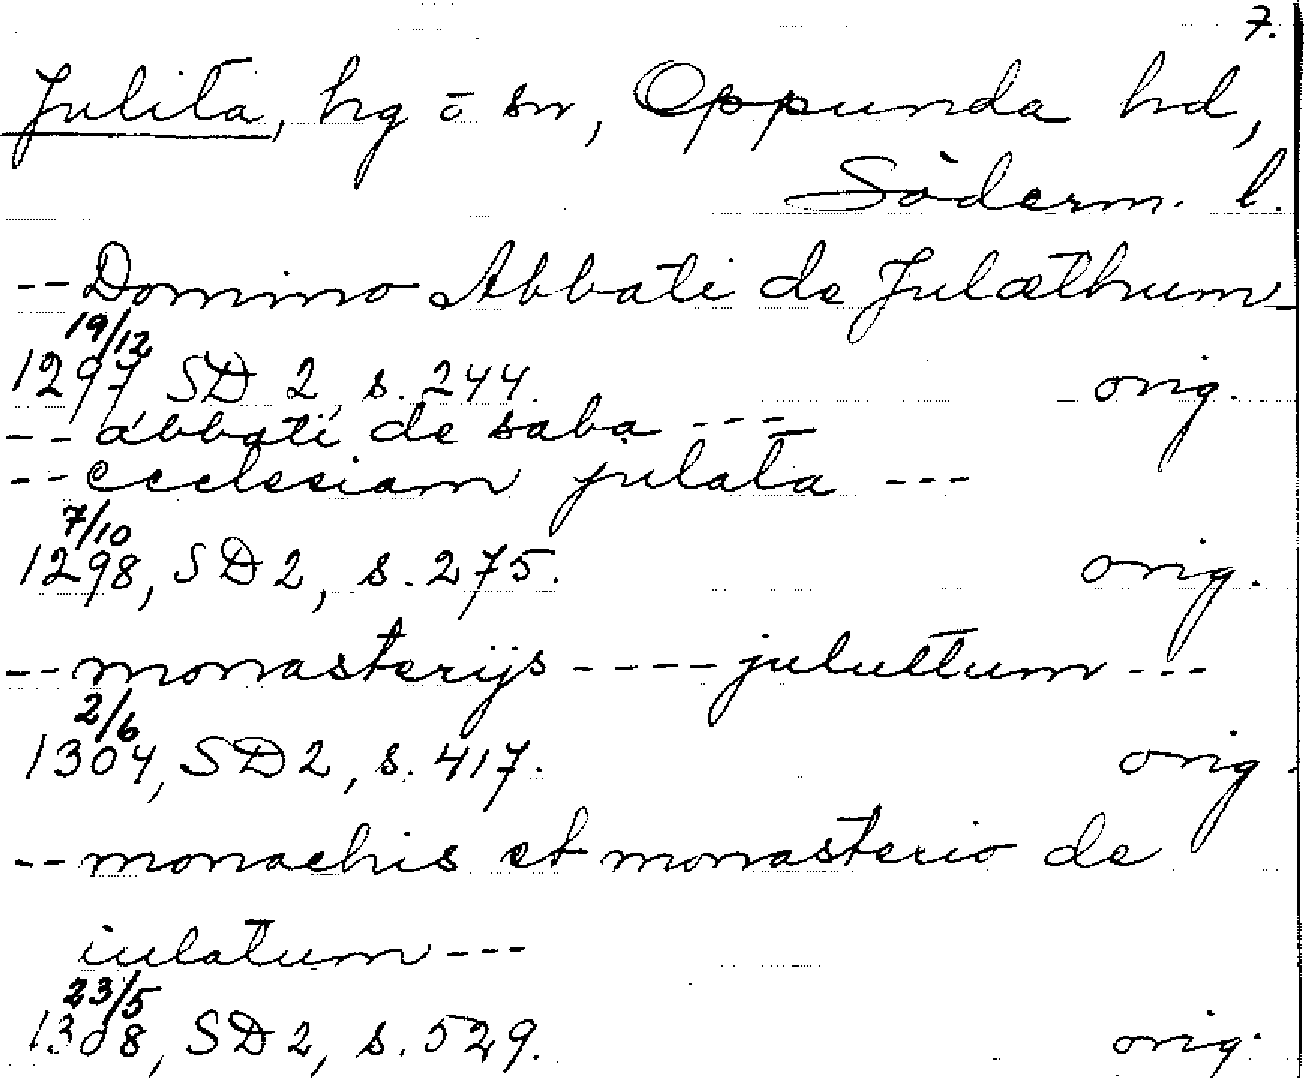 7.
Julita, hg o sn, Oppunda hd,
Söderm. l.
-- Domino Abbati de Julæthum
19/12
1297 SD 2, s. 244. orig.
-- abbati de saba ---
-- ecclesiam julata ---
7/10
1298, SD 2, s. 275. orig.
-- monasterijs ---- juluttum ---
2/6
1304, SD 2, s. 417. orig.
-- monachis et monasterio de
iulatum ---
23/5
1308, SD 2, s. 529. orig.